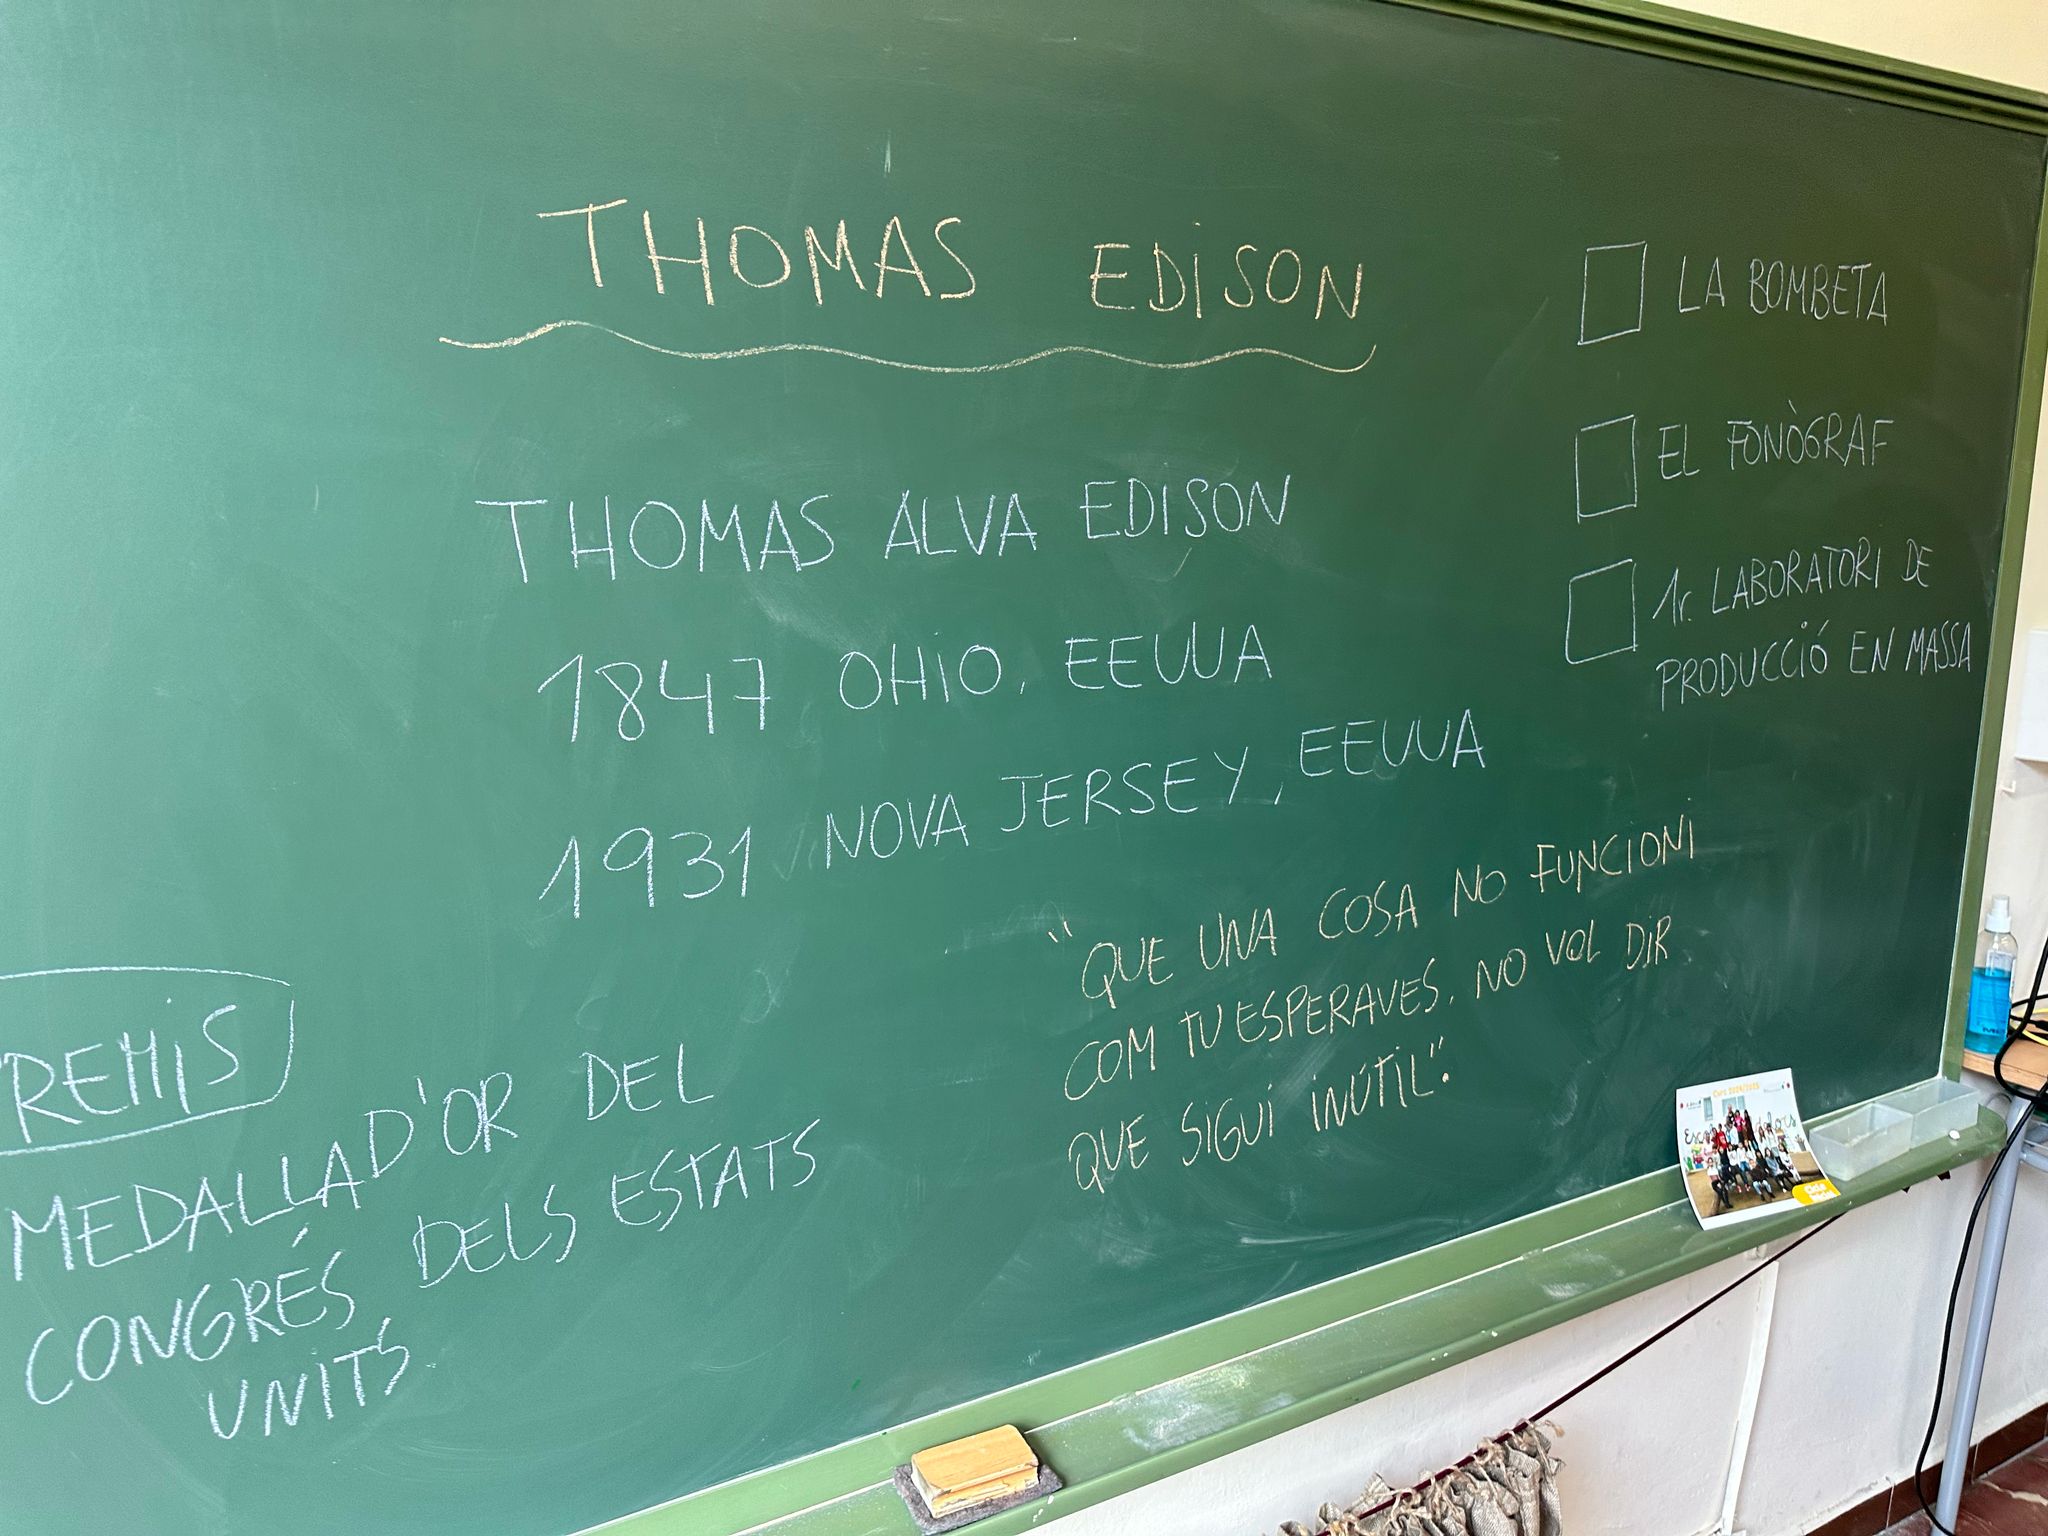 THOMAS EDISON
THOMAS ALVA EDISON
1847 OHIO, EEUUA
1931 NOVA JERSEY, EEUUA
LA BOMBETA
EL FONÒGRAF
1r. LABORATORI DE
PRODUCCIÓ EN MASSA
"QUE UNA COSA NO FUNCIONI
COM TU ESPERAVES, NO VOL DIR
QUE SIGUI INÚTIL".
PREMIS
MEDALLA D'OR DEL
CONGRÉS DELS ESTATS
UNITS
Curs 2024/2025